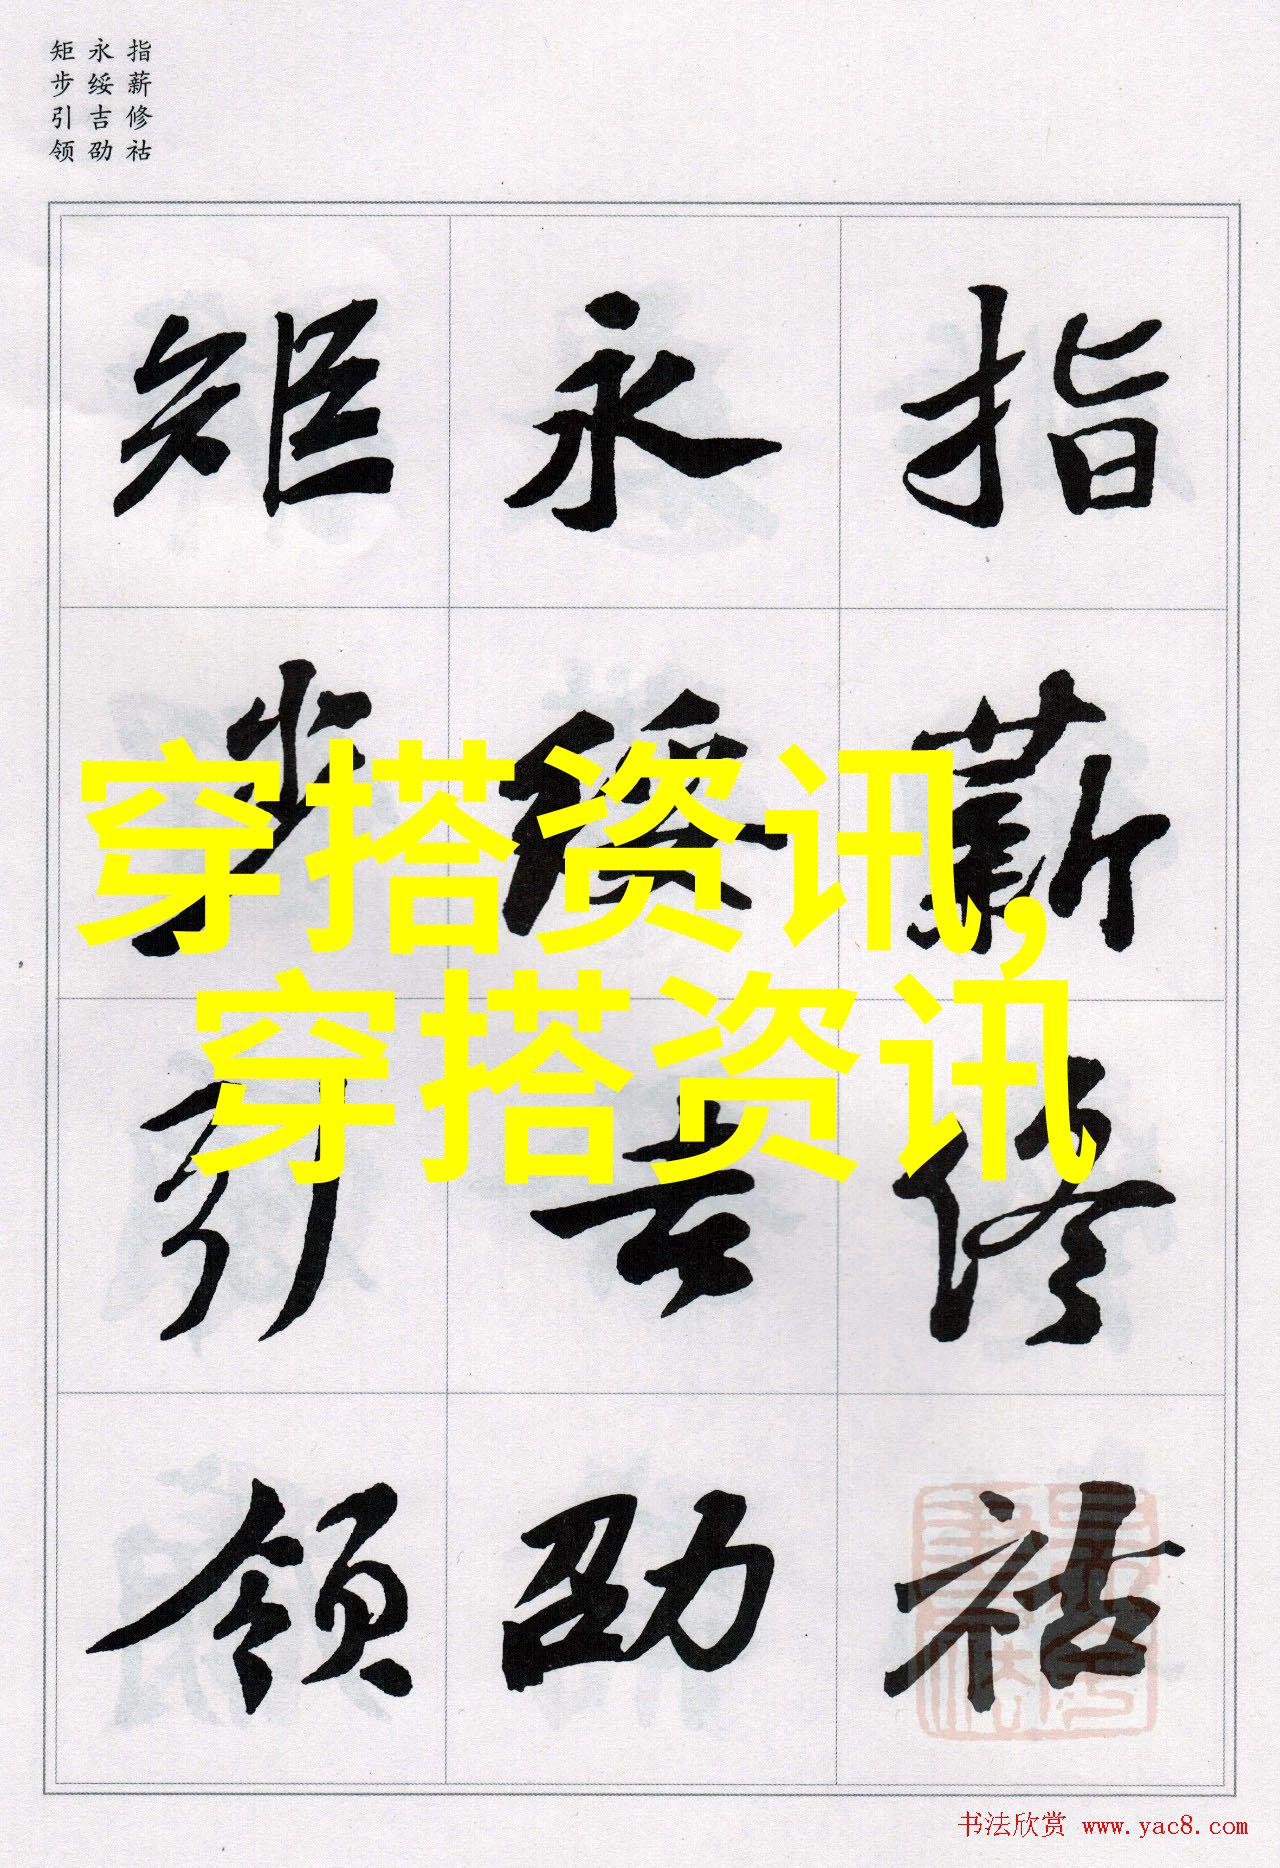 指薪修祜
永绥吉劭
矩步引领
指薪修祜
永绥吉劭
矩步引领
穿搭资讯,
穿搭资讯
书法欣赏 www.yac8.com